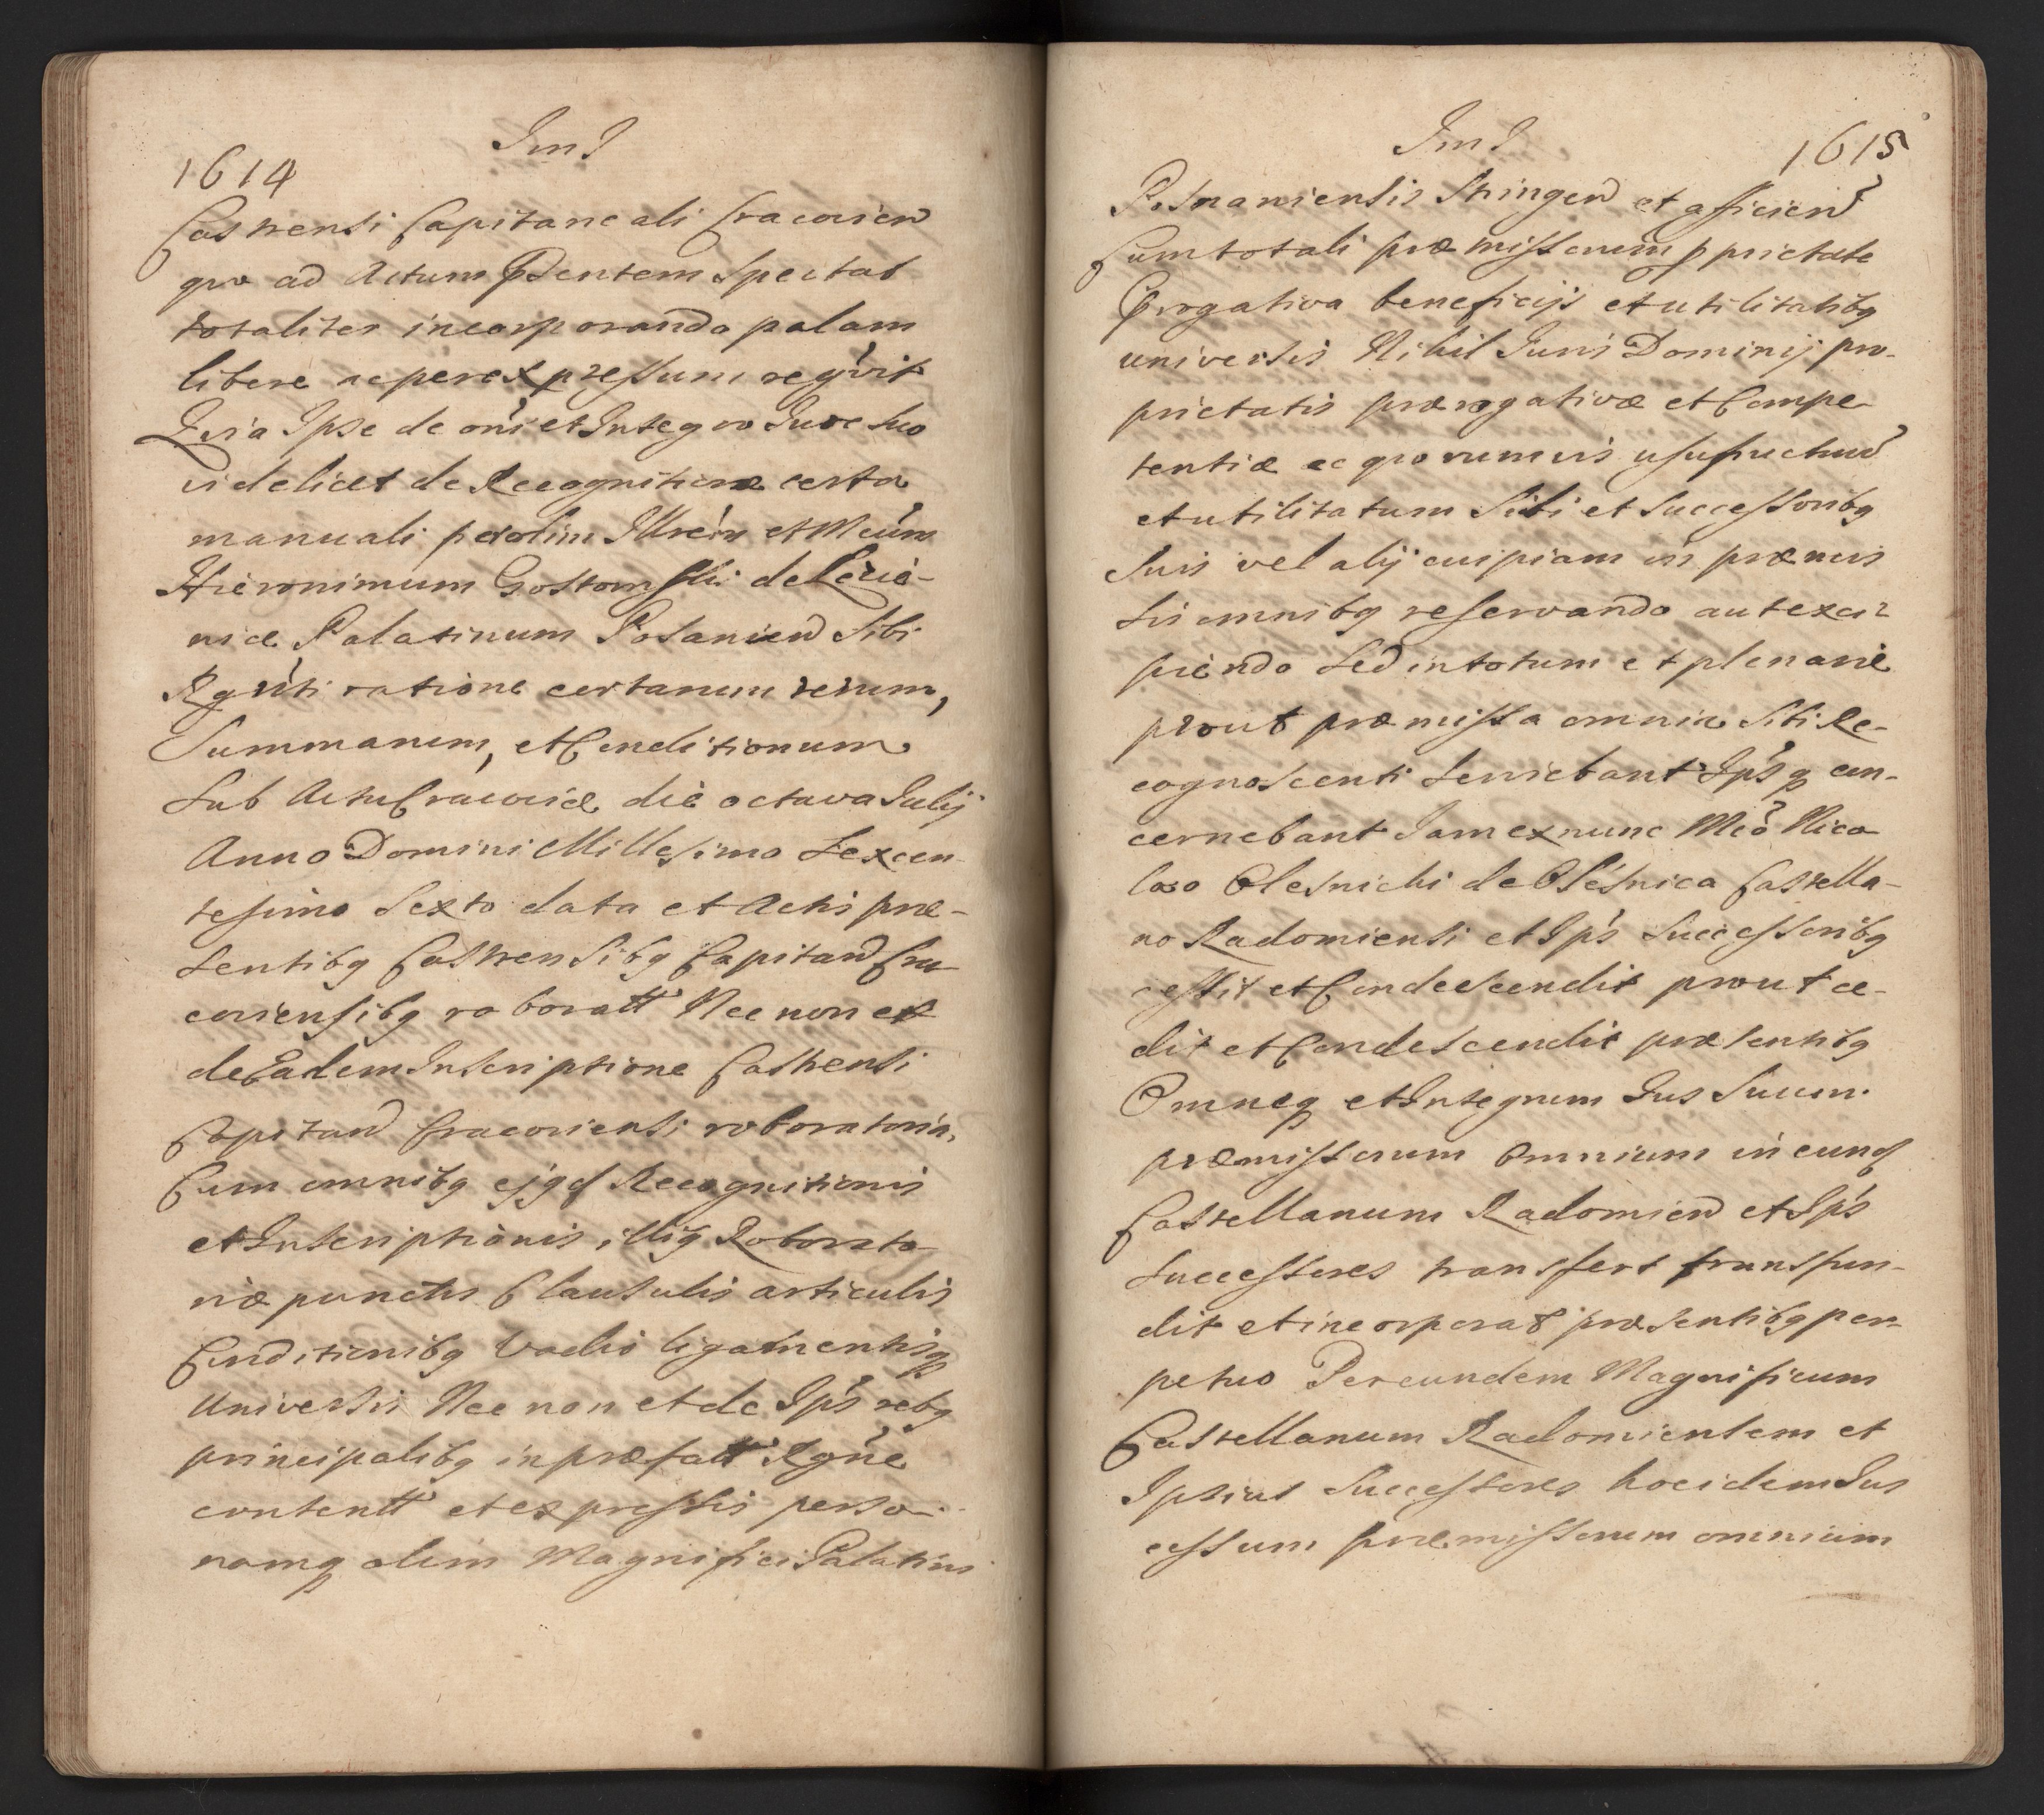 1614
Castrensi Capitaneali Cracovien
quo ad Actum Pdsentem Spectat
totaliter incorporando palam
libere ac per expressum regvit
Quia Ipse de oni et Integro Jure suo
videlicet de Recognitione certa
manuali per olim Illrem et Mcum
Hieronimum Gostomski de Lezie-
nice Palatinum Posanien Sibi
Rgnti ratione certarum rerum,
Summarum, et Conditionum
Sub Actu Cracoviæ die octava Julij
Anno Domini Millesimo Sexcen
tesimo Sexto data et Actis præ-
sentibq Castrensibq Capitan Cra-
coviensibq roboratt Nec non et
de Eadem Inscriptione Castrensi
Capitan Cracoviensi roboratoria,
Cum omnibq ejqd Recognitionis
et Inscriptionis, illiq Roborato
riæ punctis Clausulis articulis
Conditionibq Vadio ligamentisq
Universis Nec non et de Ips rebq
principalibq in præfatt Rgne
contentt et expressis perso-
namq olim Magnifici Palatini
1615
Posnaniensis Stringen et afficien
Cum totali præmissorum pprietate
Prrogativa beneficijs et utilitatibq
universis Nihil Juris Dominij pro-
prietatis prærogativæ et Compe-
tentiæ ac quorumvis usufructuu
et utilitatum Sibi et Successoribq
Suis vel alij cuipiam in præmis
sis omnibq reservando aut exci-
piendo Sed in totum et plenarie
prout præmissa omnia Sibi Re-
cognoscenti serviebant Ipsq con-
cernebant Jam ex nunc Mco Nico
lao Olesnicki de Olesnica Castella-
no Radomiensi et Ips Successoribq
cessit et Condescendit prout ce-
dit et Condescendit præsentibq
Omneq et Integrum Jus Suum
præmissorum Omnium in eund
Castellanum Radomien et Ips
Successores transfert transfun-
dit et incorporat præsentibq per-
petuo Per eundem Magnificum
Castellanum Radomiensem et
Ipsius Successores hoc idem Jus
cessum præmissorum omnium